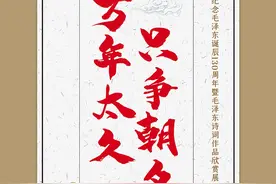 万年太久
只争朝夕
纪念毛泽东诞辰130周年暨毛泽东诗词作品欣赏展